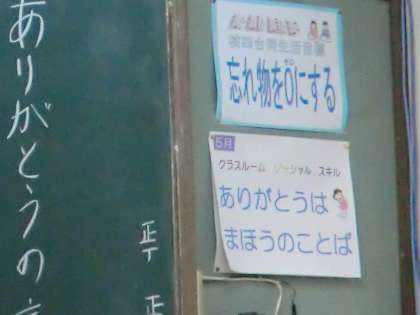 ありがとうの
正丅
正
生活目標
忘れ物を0にする
5月
クラスルーム ソーシャル スキル
ありがとうは
まほうのことば